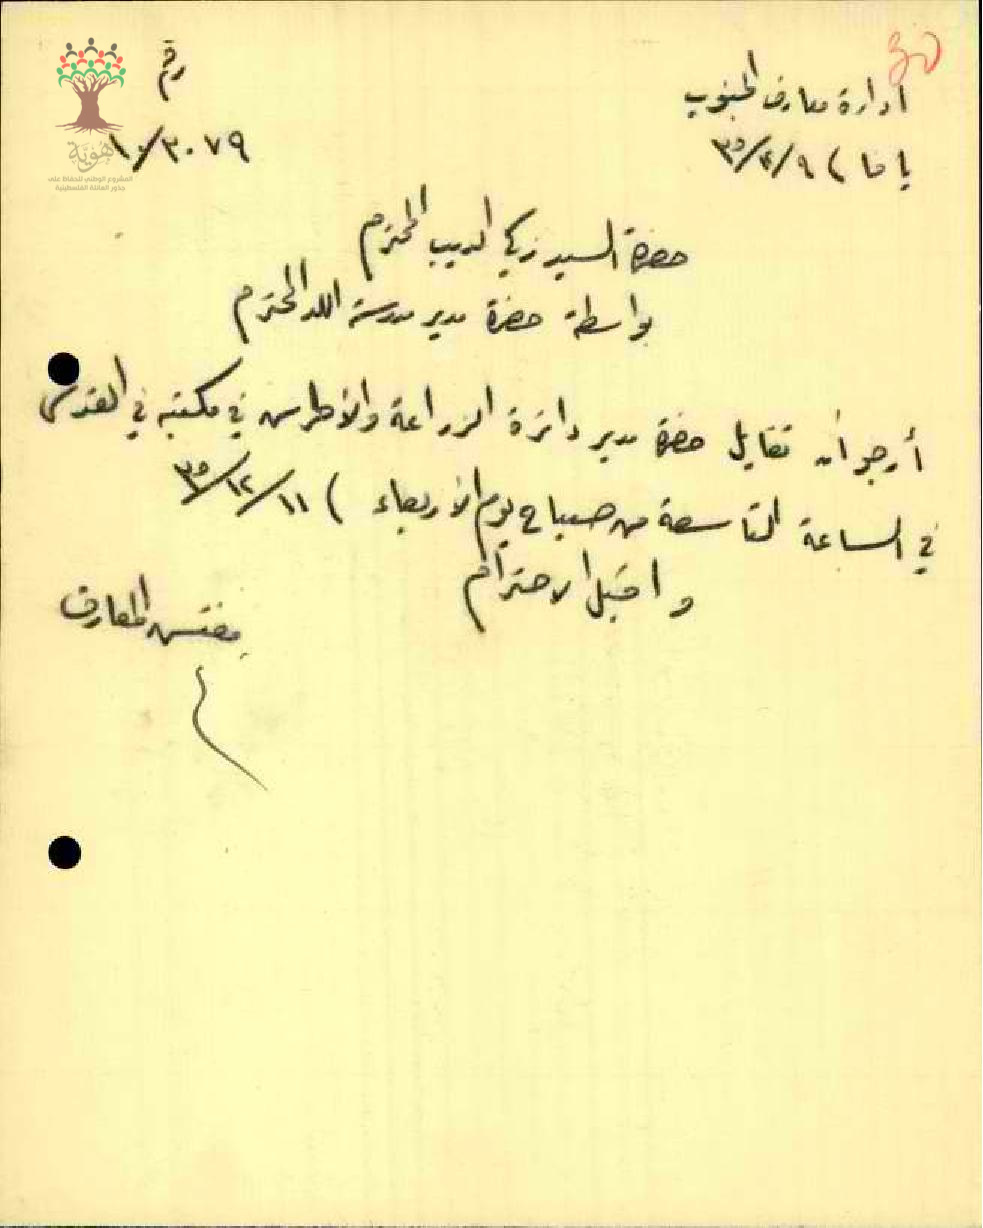 30
رقم
ادارة معارف الجنوب
١٠/٣٠٧٩
يافا ) ٩/ /٣٥
هوية
المشروع الوطني للحفاظ على
جذور العائلة الفلسطينية
حضرة السيد زكي الديب المحترم
بواسطة حضرة مدير مدرسة اللد المحترم
أرجو أن تقابل حضرة مدير دائرة الزراعة والأحراش في مكتبه في القدس
في الساعة التاسعة من صباح يوم الأربعاء ) ١١/١٢/٣٥
واقبل الاحترام
مفتش المعارف